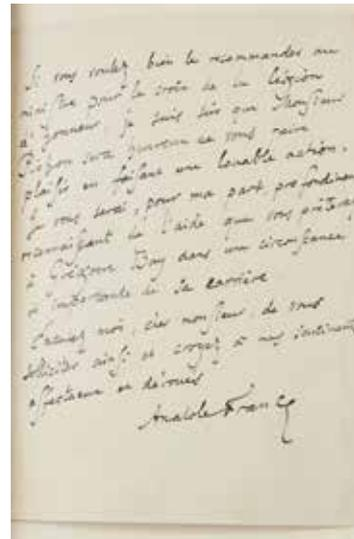 Si vous voulez bien le recommander au
ministre pour la croix de la Légion
d'honneur, je suis sûr que Monsieur
sera heureux de vous faire
plaisir en faisant une louable action.
Je vous serai, pour ma part profondément
reconnaissant de l'aide que vous prêterez
à Grégoire dans une circonstance
si importante de sa carrière
Excusez moi, cher monsieur, de vous
solliciter ainsi et croyez à mes sentiments
affectueux et dévoués
Anatole France